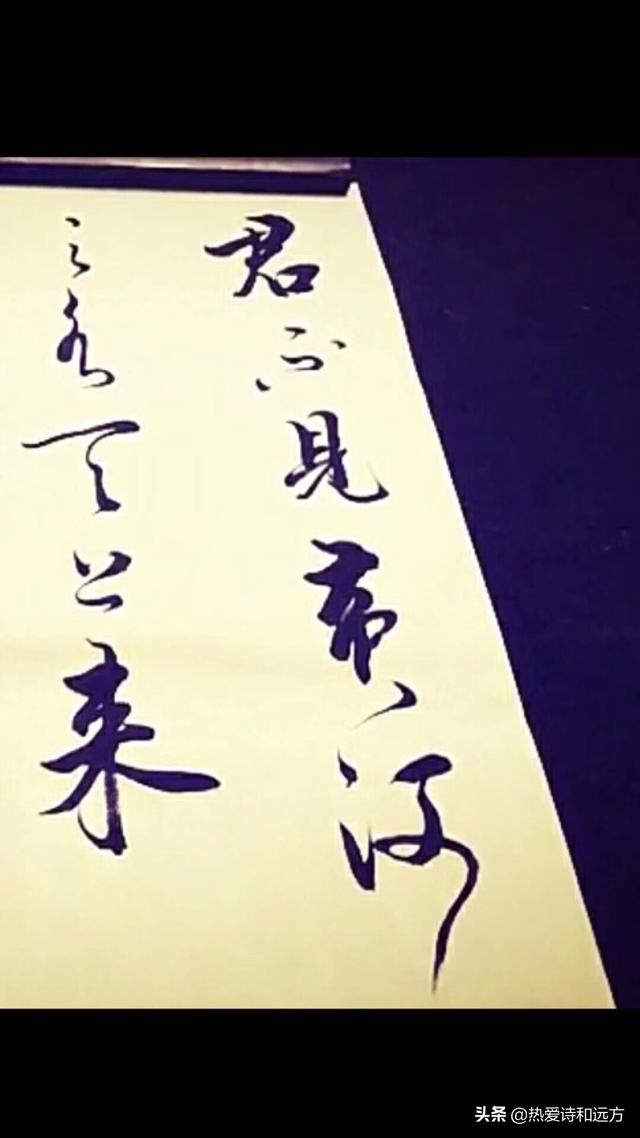 君不见黄河
之水天上来
头条 @热爱诗和远方